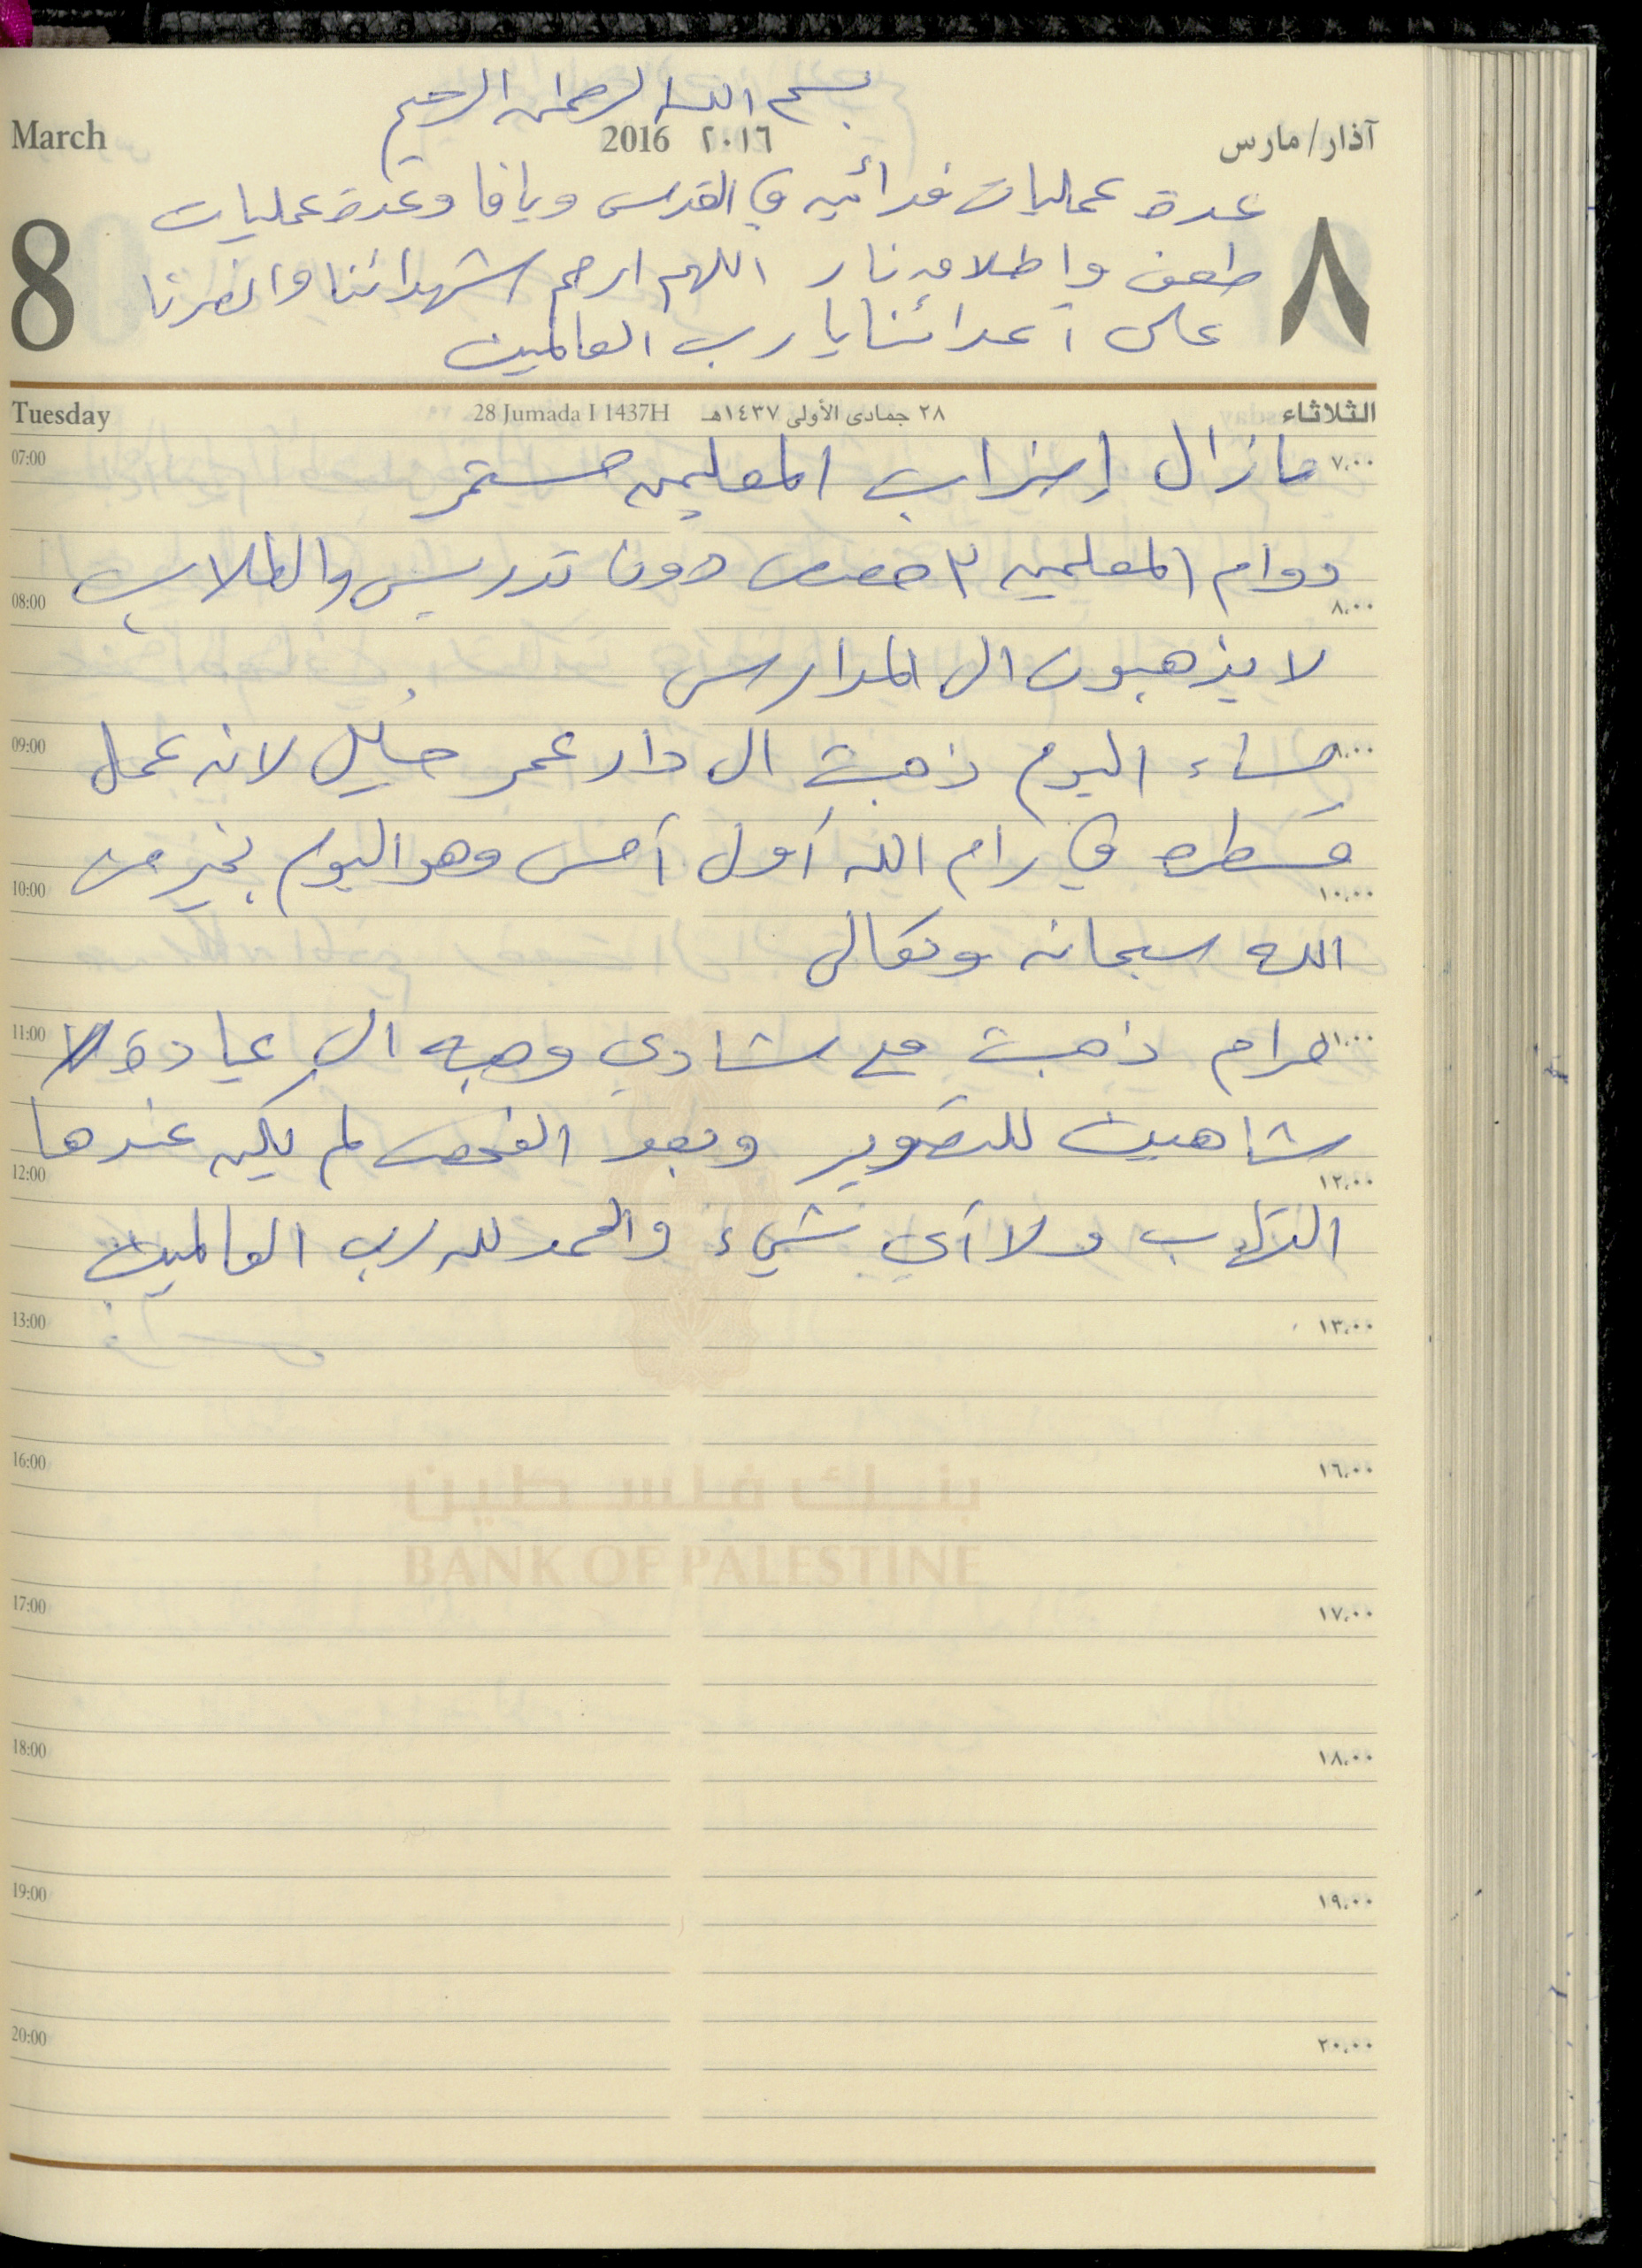 بسم الله الرحمن الرحيم
March 2016 ٢٠١٦ آذار/مارس
عدة عمليات فدائيه في القدس ويافا وعدة عمليات
8 ٨
طعن واطلاق نار اللهم ارحم شهدائنا وانصرنا
على أعدائنا يا رب العالمين
Tuesday 28 Jumada I 1437H ٢٨ جمادى الأولى ١٤٣٧هـ الثلاثاء
07:00 ٧،٠٠
مازال إضراب المعلمين مستمر
دوام المعلمين ٣ حصص دون تدريس والطلاب
08:00 ٨،٠٠
لا يذهبون الى المدارس
09:00
مساء اليوم ذهبت الى دار عمر حايل لانه عمل
قسطره في رام الله أول أمس وهو اليوم بخير من
10:00 ١٠،٠٠
الله سبحانه وتعالى
11:00 ١١،٠٠
مرام ذهبت مع شادي وهبه الى عيادة
شاهين للتصوير وبعد الفحص لم يكن عندها
12:00 ١٢،٠٠
التهاب ولا أي شيء والحمد لله رب العالمين
13:00 ١٣،٠٠
16:00 ١٦،٠٠
بنك فلسطين
BANK OF PALESTINE
17:00 ١٧،٠٠
18:00 ١٨،٠٠
19:00 ١٩،٠٠
20:00 ٢٠،٠٠